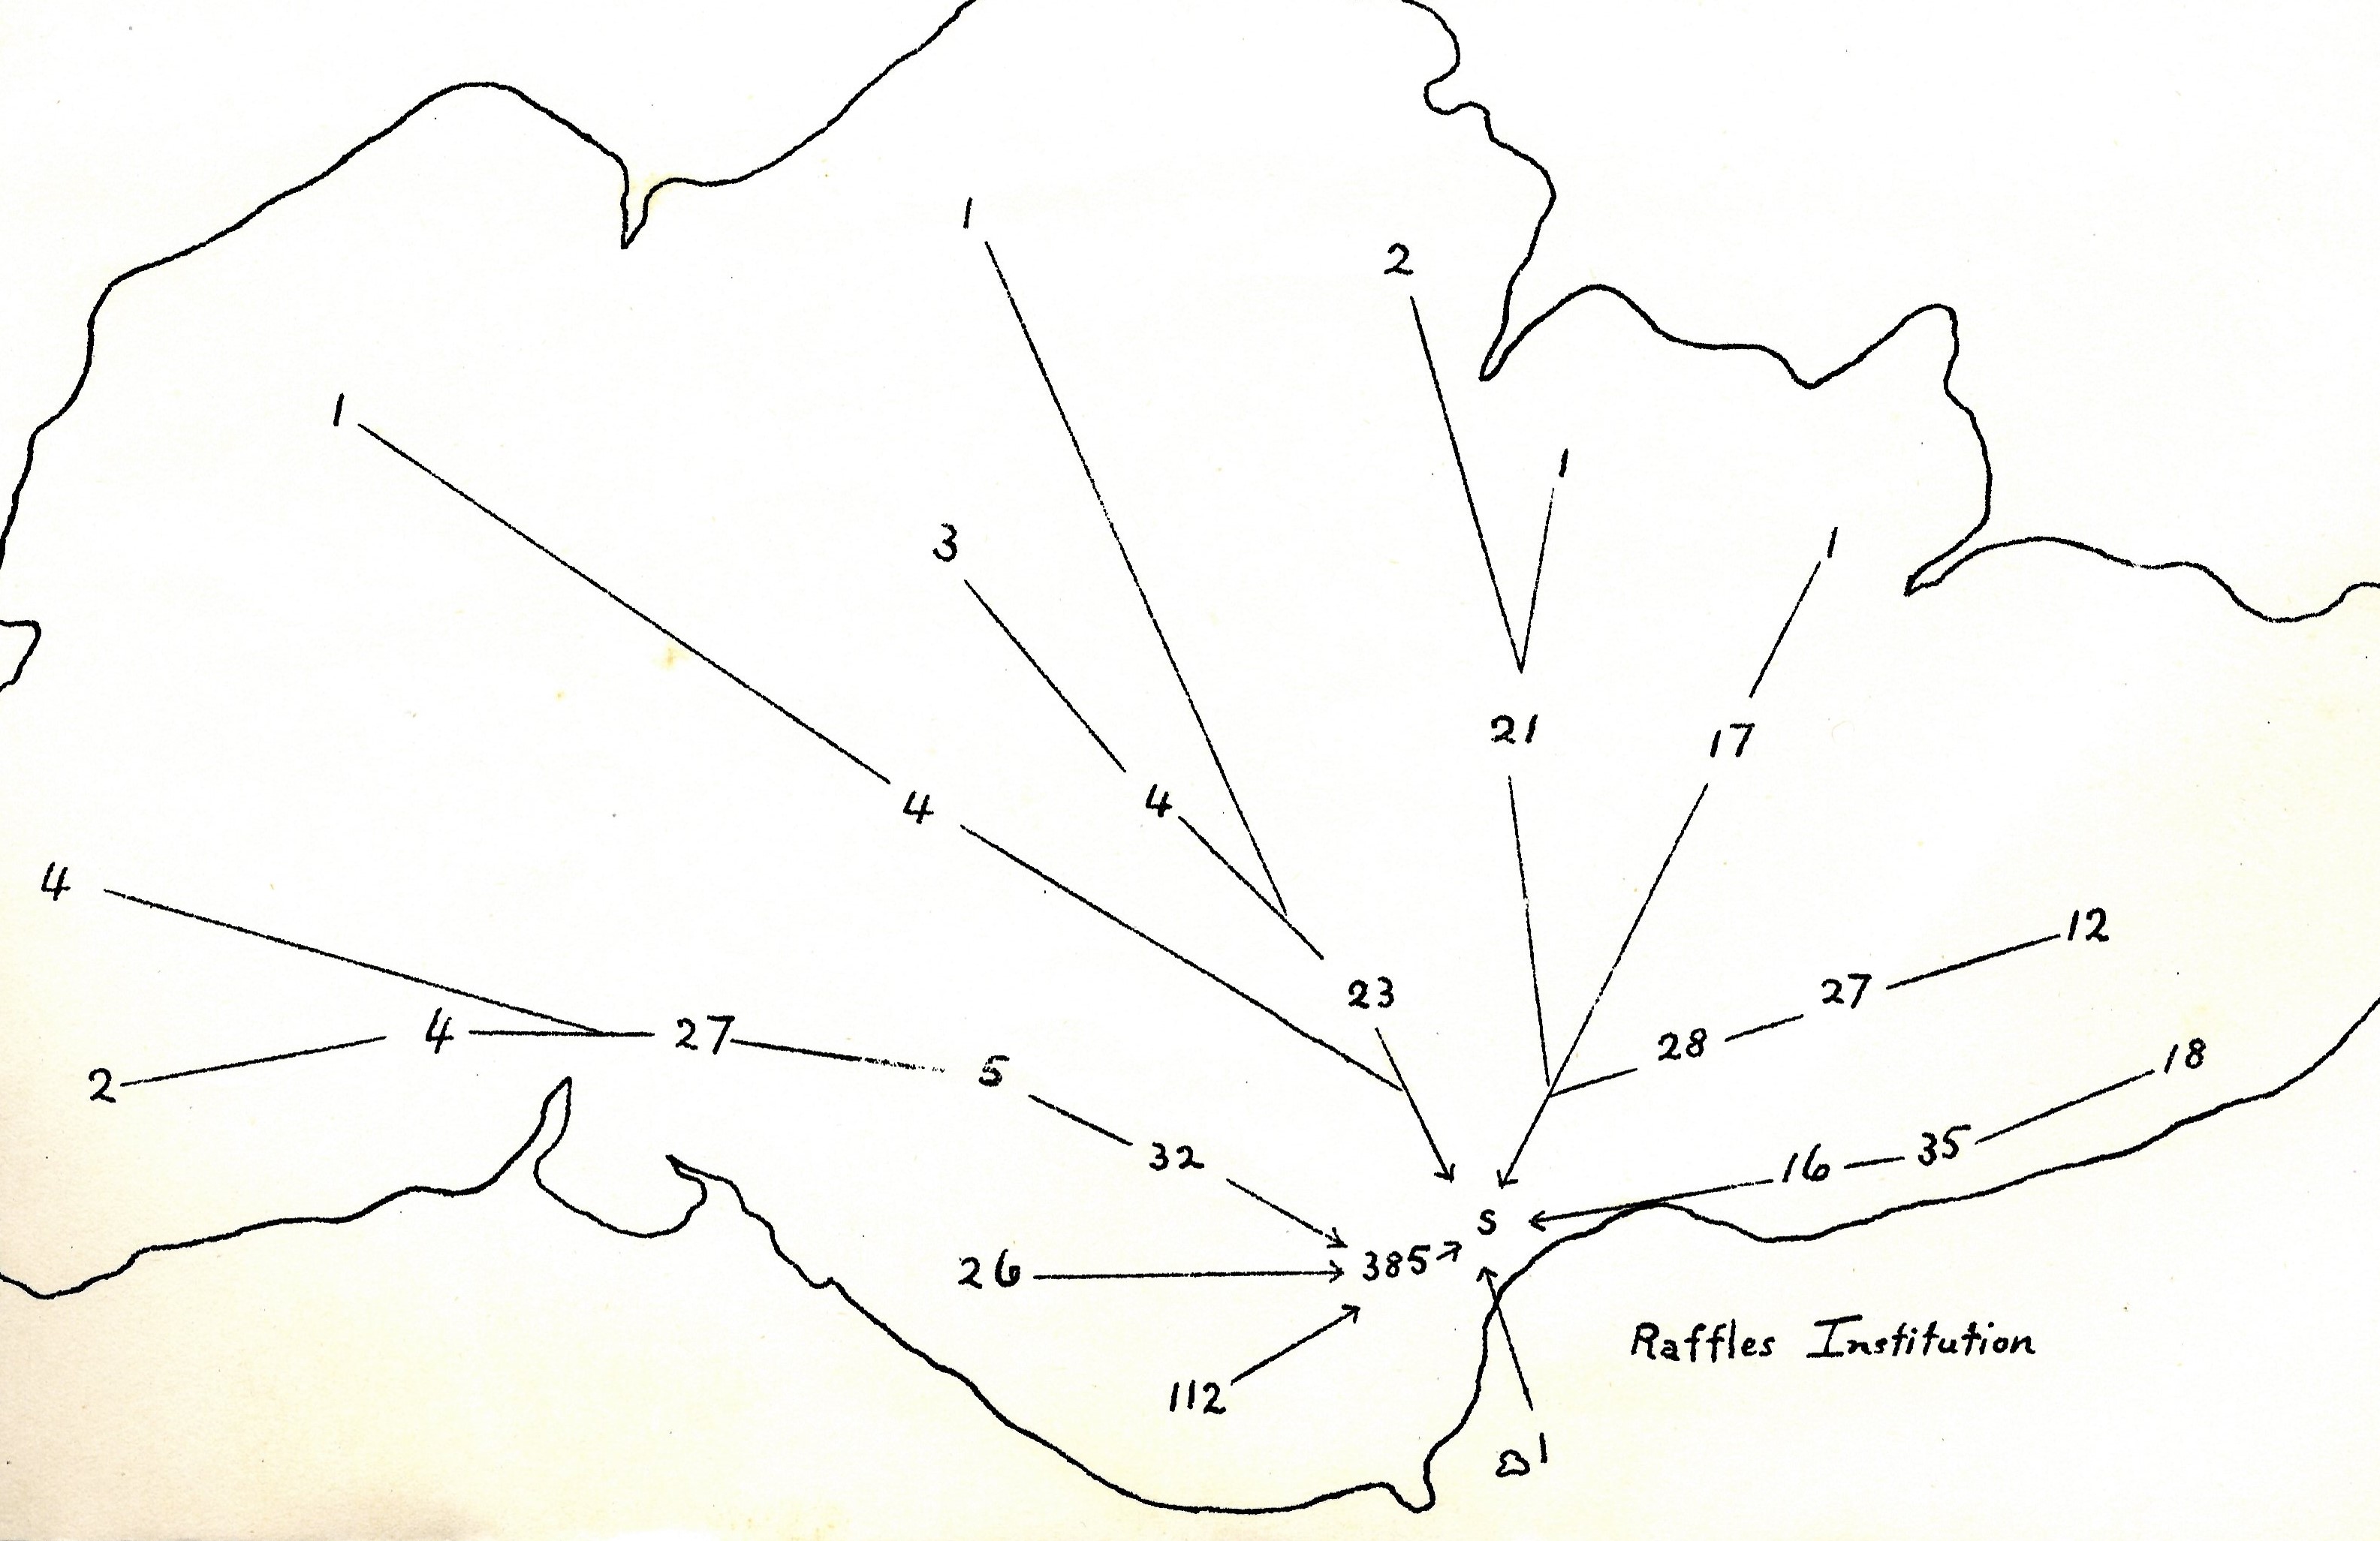 1
2
1
1
3
1
21
17
4
4
4
12
23
27
4
27
28
2
5
18
32
35
16
S
385
26
Raffles Institution
112
1